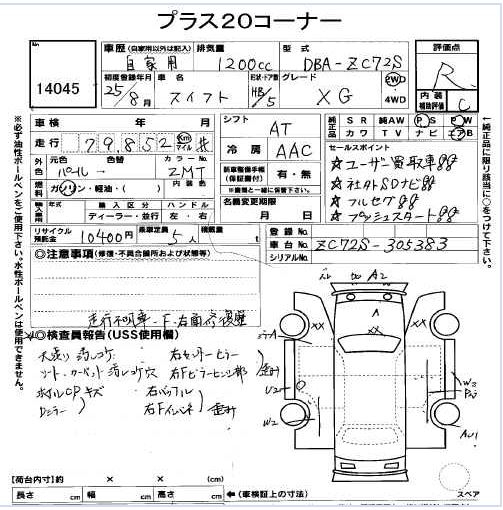 プラス20コーナー
14045
車歴 (自家用以外は記入) 排気量 型式
自家用 1200cc DBA-ZC72S
初度登録年月 車名 形状・ドア数 グレード
25/8月 スイフト HB/5 XG 2WD 4WD
評価点
R
内装補助評価
C
車検 年 月
走行 79852 km マイル #
外色 元色 色替 カラーNo.
パール→ ZMT
内装色
燃料 ガソリン・軽油・( )
輸入車用 輸入区分 ハンドル
ディーラー・並行 左・右
リサイクル預託金 10400円 乗車定員 5人 積載量 t
シフト AT
冷房 AAC
新車整備手帳(保証書付) 有・無
名義変更期限
月 日
純正品 SR 純AW PS PW
カワ TV ナビ エアB
セールスポイント
☆ユーザー買取車!!
☆社外SDナビ!!
☆フルセグ!!
☆プッシュスタート!!
登録No.
車台No. ZC72S-305383
シリアルNo.
◎注意事項(修復・不具合箇所および状態等)
走行不明車 F、右面修復歴
◎検査員報告(USS使用欄)
右センターピラー
右Fピラーヒンジ部
右Fインパネ
歪み
キズ
A2
A
XX
XX
U2
W2
W3
AU1
スペア
【荷台内寸】約 × × (cm)
長さ cm 幅 cm 高さ cm ←(車検証上の寸法)
※必ず油性ボールペンをご使用下さい。水性ボールペンは使用できません。
※純正品に限り該当に○をつけて下さい。